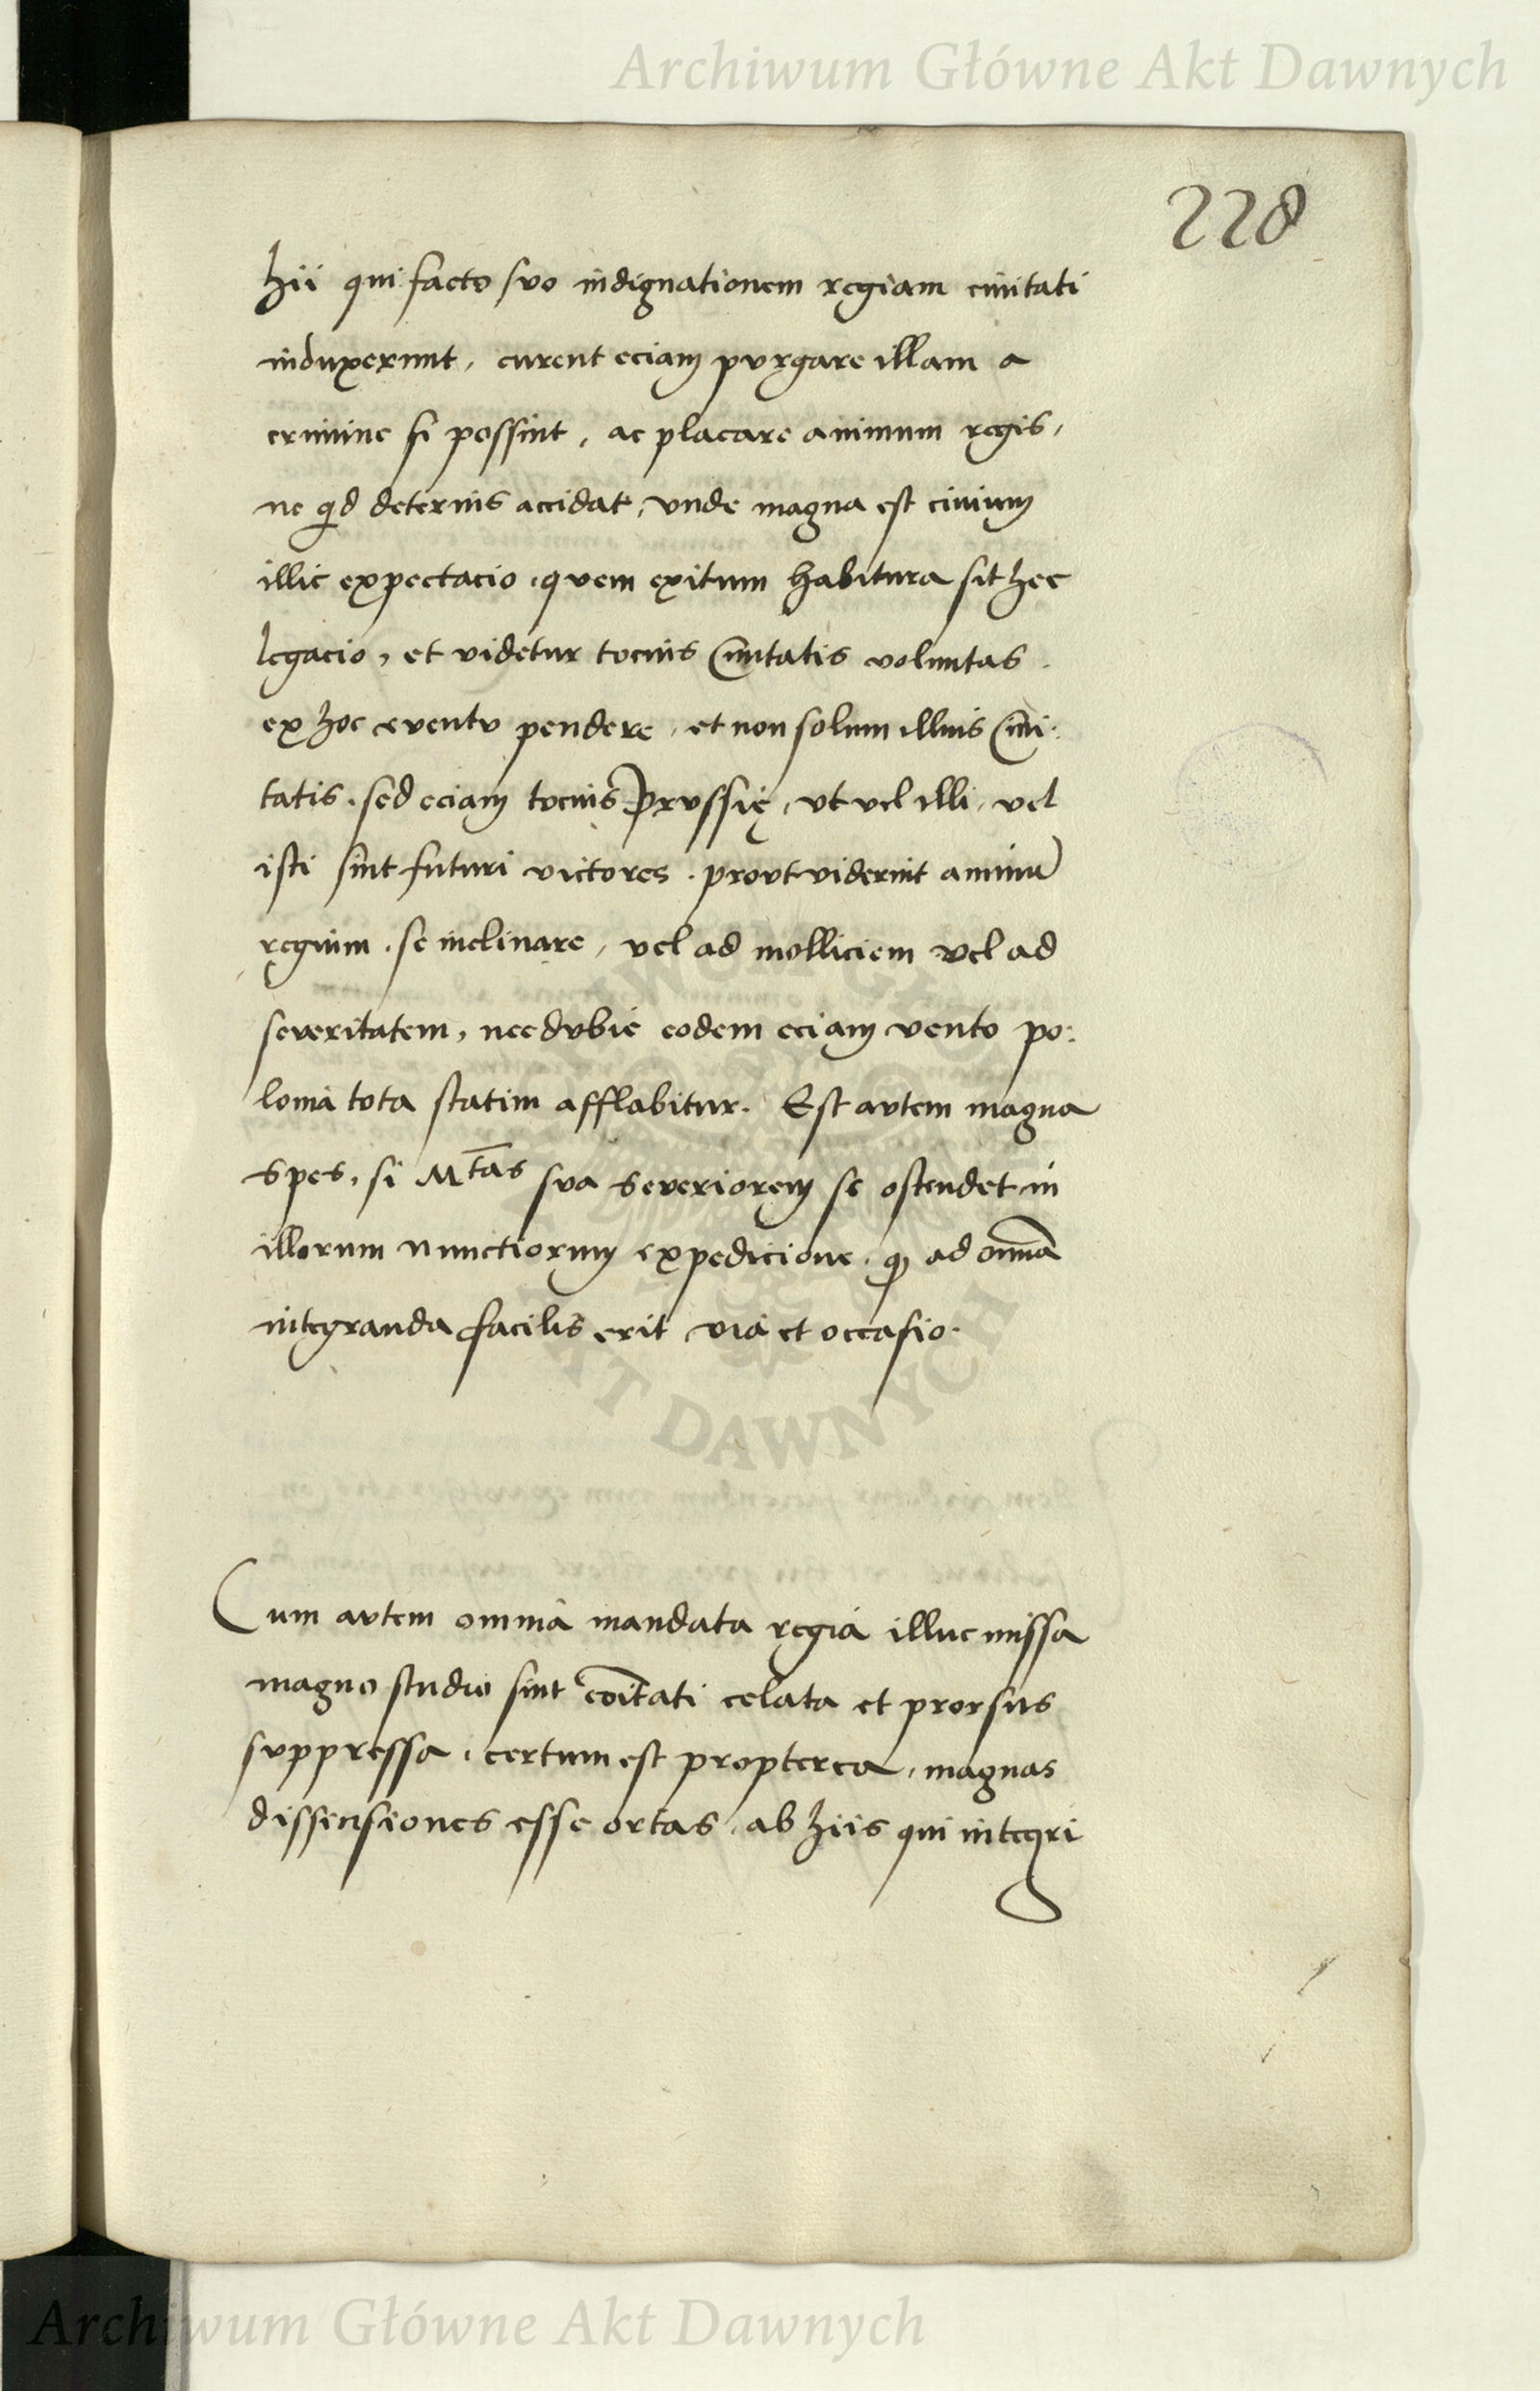 Archiwum Główne Akt Dawnych
228
hii qui facto suo indignationem regiam civitati
induxerunt, curent eciam purgare illam a
crimine si possint, ac placare animum regis,
ne qid deterius accidat, vnde magna est civium
illic expectacio, quem exitum habitura sit hec
legacio, et videtur tocius Civitatis voluntas
ex hoc eventu pendere, et non solum illius Civi:
tatis, sed eciam tocius Prussię, ut vel illi, vel
isti sint futuri victores, prout viderint animū
regium, se inclinare, vel ad molliciem vel ad
severitatem, nec dubie eodem eciam vento po:
lonia tota statim afflabitur. Est autem magna
spes, si Mtas sua severiorem se ostendet in
illorum nunctiorum expedicione, q ad omīa
integranda facilis erit via et occasio.
Cum autem omnia mandata regia illuc missa
magno studio sint coītati celata et prorsus
suppressa, certum est propterea, magnas
dissensiones esse ortas, ab hiis qui integri
AKT DAWNYCH
Archiwum Główne Akt Dawnych